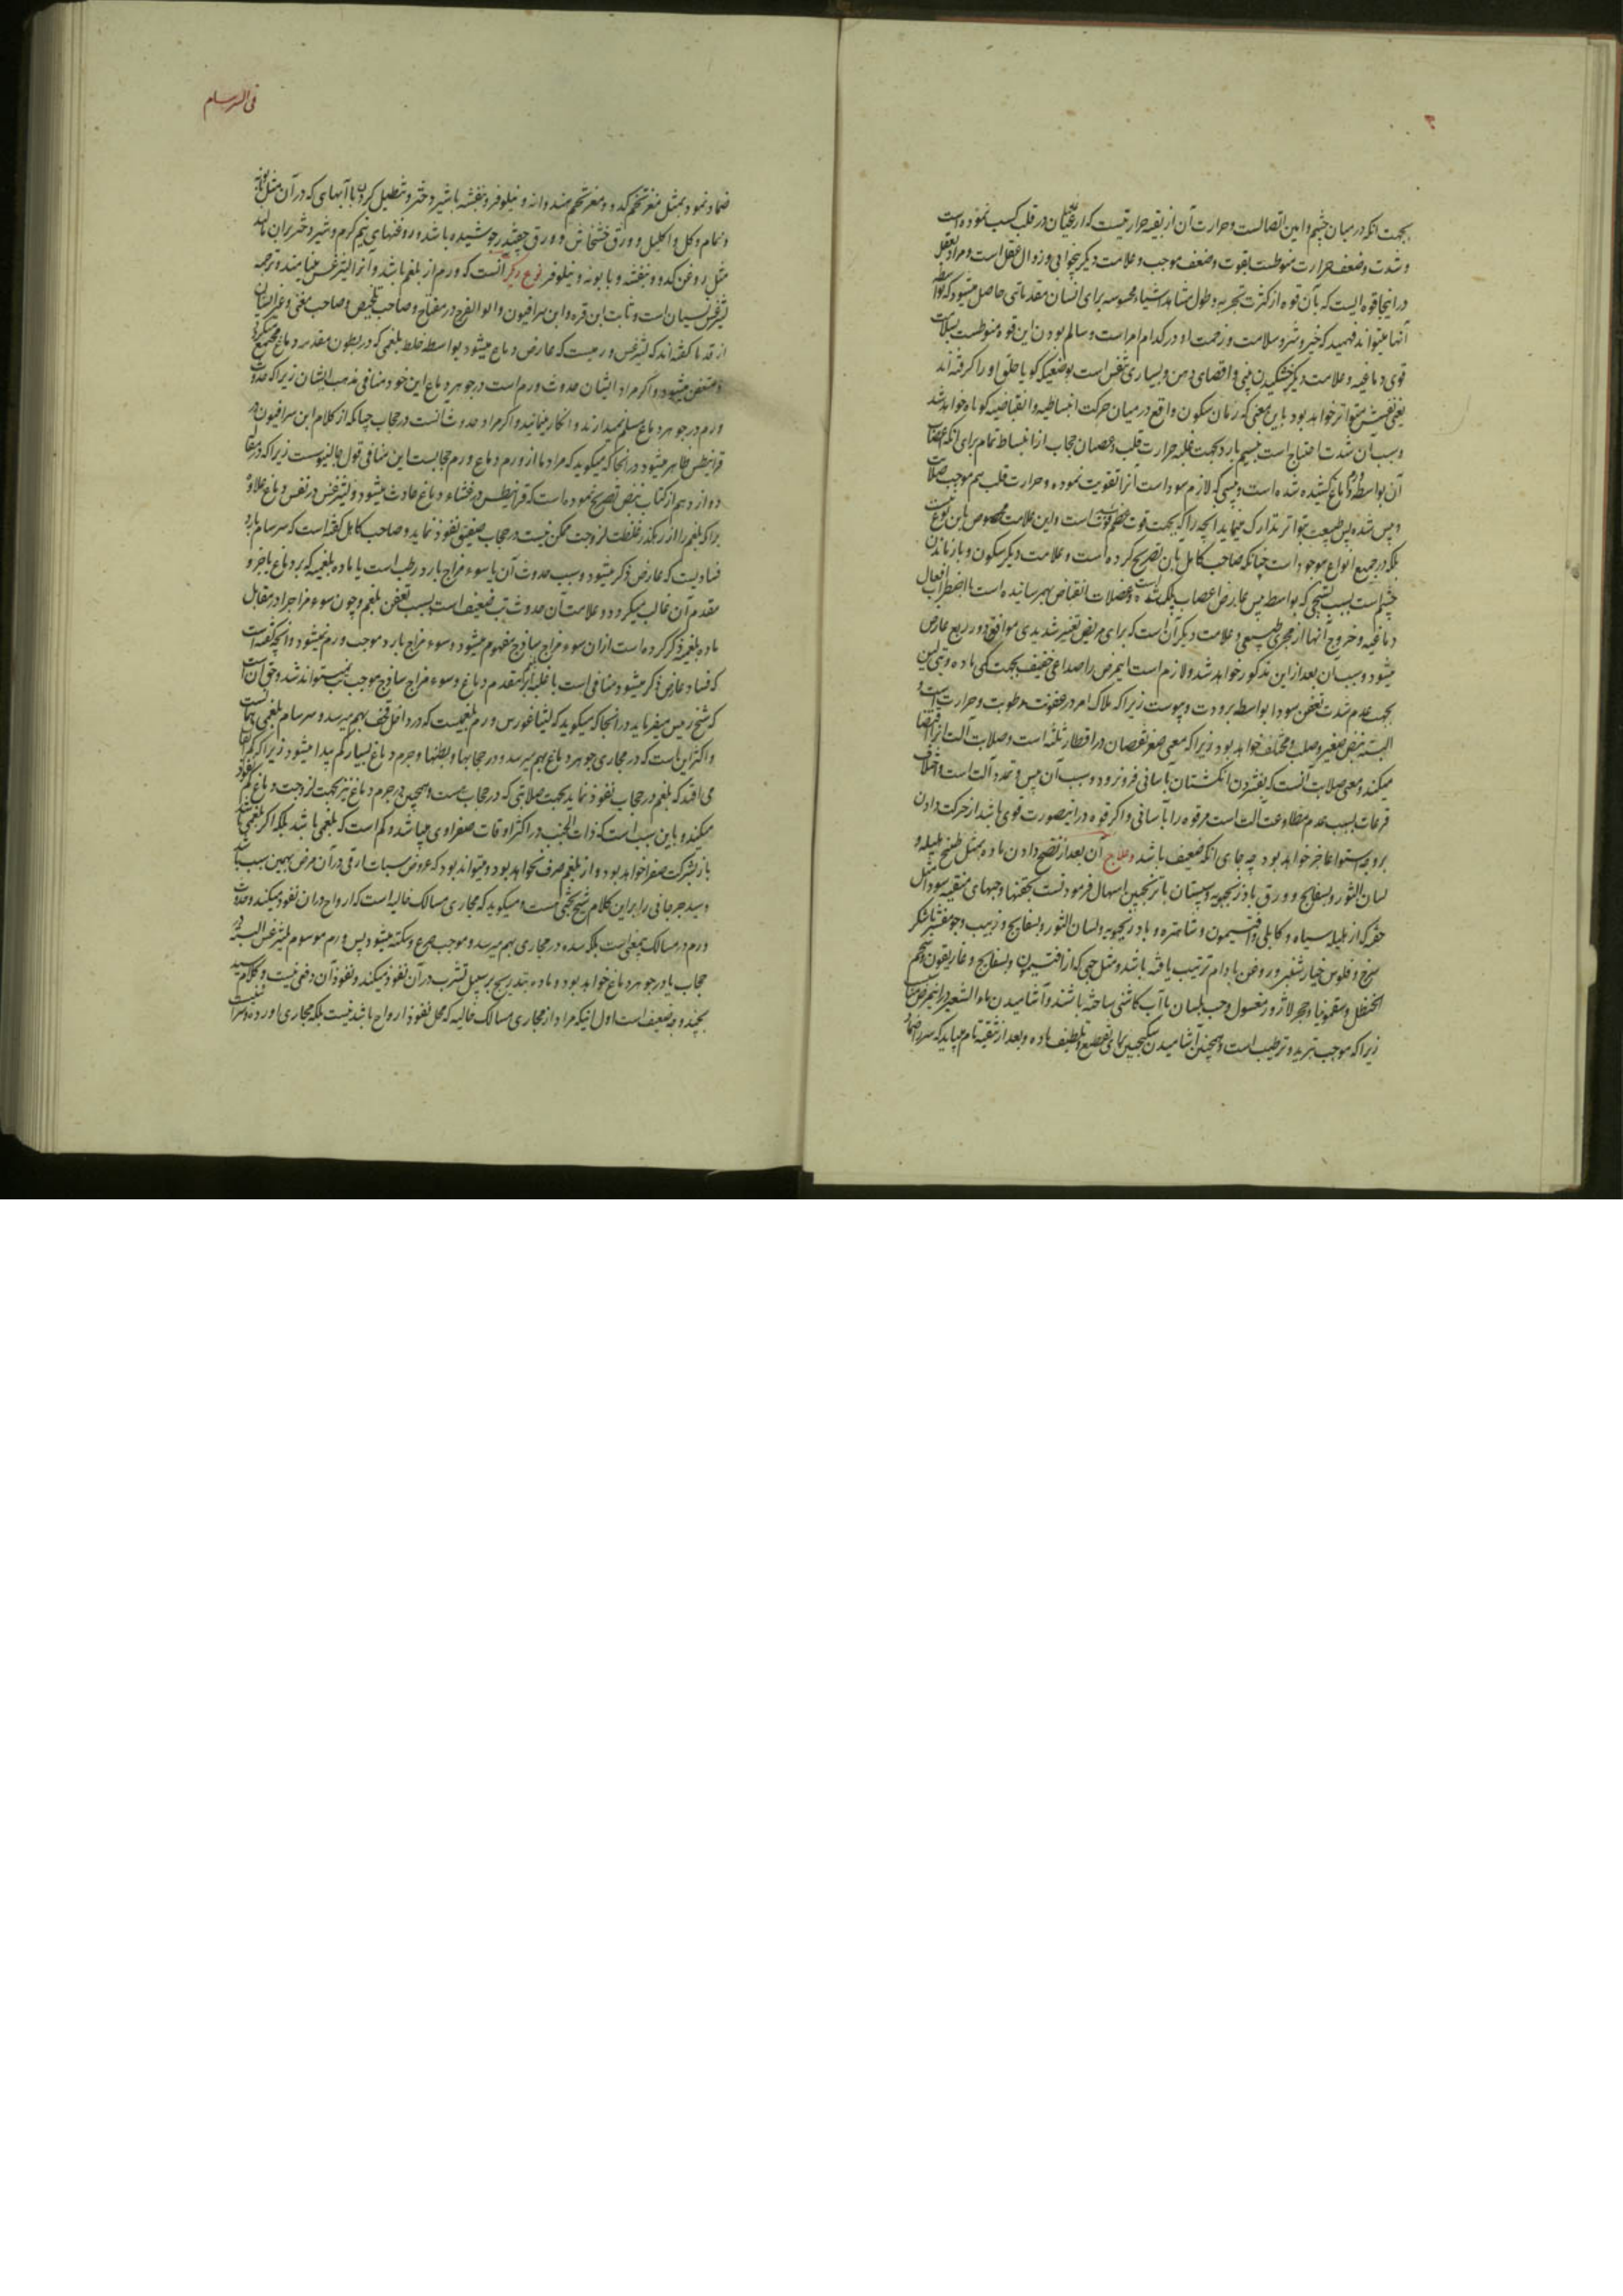 بجهت آنکه در میان چشم و این اتصالست و حرارت آن از بقیه حرارتیست که از غلیان در قلب کسب نموده است
و شدت و ضعف حرارت منوطست بقوت و ضعف موجب و علامت دیگر بیخوابی و زوال عقل است و مراد بعقل
در اینجا قوه ایست که بآن قوه از کثرت تجربه و طول مشاهد اشیاء محسوسه برای انسان مقدماتی حاصل میشود که بواسطه
آنها میتواند فهمید که خیر و شر و سلامت و زحمت او در کدام امر است و سالم بودن این قوه منوطست بسلامت
قوی دماغیه و علامت دیگر خشکیدن بینی و اقصای دهن و بسیاری تنفس است بوضعیکه گویا حلق او را گرفته اند
یعنی نفسش متواتر خواهد بود باین معنی که زمان سکون واقع در میان حرکت انبساطیه و انقباضیه کوتاه خواهد شد
و سبب آن شدت احتیاج است بنسیم بارد بجهت غلبه حرارت قلب و عصیان حجاب از انبساط تمام برای آنکه اعصاب
آن بواسطه ورم دماغ کشیده شده است و یبسی که لازم سوداست آنرا تقویت نموده و حرارت قلب هم موجب صلابت
و یبس شده پس طبیعت بتواتر تدارک مینماید آنچه را که بجهت فوت عظم فوت شده است و این علامت مخصوص باین نوع نیست
بلکه در جمیع انواع موجود است چنانکه صاحب کامل باین تصریح کرده است و علامت دیگر سکون و باز ماندن
چشم است بسبب تشنجی که بواسطه یبس عارض اعصاب پلک شده است و عضلات انقباض بهم رسانیده است با اضطراب افعال
دماغیه و خروج آنها از مجری طبیعی و علامت دیگر آن است که برای مریض تغیر شدیدی موافق دور ربع عارض
میشود و سبب آن بعد از این مذکور خواهد شد و لازم است این مرض را صداعی خفیف بجهت کمی ماده و تبی لین
بجهت عدم شدت تعفن سودا بواسطه برودت و یبوست زیرا که ملاک امر در عفونت رطوبت و حرارت است و
البته نبض صغیر و صلب و مختلف خواهد بود زیرا که معنی صغر نقصان در اقطار ثلثه است و صلابت آلت آنرا اقتضا
میکند و معنی صلابت آنست که بفشردن انگشتان بآسانی فرو نرود و سبب آن یبس و تمدد آلت است و اختلاف
قرعات بسبب عدم مطاوعت آلت است مر قوه را بآسانی و اگر قوه در اینصورت قوی باشد از حرکت دادن
بر وجه استوا عاجز خواهد بود چه جای آنکه ضعیف باشد و علاج آن بعد از نضج دادن ماده بمثل طبیخ هلیله و
لسان الثور و بسفایج و ورق بادرنجبویه و سپستان با ترنجبین اسهال فرمودنست بحقنها و حبهای منقیه سودا مثل
حقنه که از هلیله سیاه و کابلی و افتیمون و شاهتره و بادرنجبویه و لسان الثور و بسفایج و زبیب و جو مقشر با شکر
سرخ و فلوس خیارشنبر و روغن بادام ترتیب یافته باشد و مثل حبی که از افتیمون و بسفایج و غاریقون و شحم
الحنظل و سقمونیا و حجر لاژورد مغسول و حب بلسان با آب کاسنی ساخته باشند و آشامیدن ماء الشعیر در این مرض مناسبست
زیرا که موجب تبرید و ترطیب است و همچنین آشامیدن سکنجبین برای تقطیع و تلطیف ماده و بعد از تنقیه تام میباید که سر را ضماد
فی السرسام
ضماد نمود بمثل مغز تخم کدو و مغز تخم هندوانه و نیلوفر و بنفشه با شیر دختر و تنطیل کردن با آبهایی که در آن مثل بابونه
و نمام و گل و اکلیل و ورق خشخاش و ورق چغندر جوشیده باشد و روغنهای نیم گرم و شیر دختر بر آن مالند
مثل روغن کدو و بنفشه و بابونه و نیلوفر نوع دیگر آنست که ورم از بلغم باشد و آنرا لیثرغس مینامند و ترجمه
لیثرغس نسیان است و ثابت ابن قره و ابن سرافیون و ابو الفرج در مفتاح و صاحب تلخیص و صاحب مغنی و غیر ایشان
از قدما گفته اند که لیثرغس ورمیست که عارض دماغ میشود بواسطه خلط بلغمی که در بطون مقدم دماغ مجتمع میگردد
و متعفن میشود و اگر مراد ایشان حدوث ورم است در جوهر دماغ این خود منافی مذهب ایشان زیرا که حدوث
ورم در جوهر دماغ مسلم نمیدارند و انکار مینمایند و اگر مراد حدوث آنست در حجاب چنانکه از کلام ابن سرافیون در
قرانیطس ظاهر میشود در آنجا که میگوید که مراد ما از ورم دماغ ورم حجابست این منافی قول جالینوست زیرا که در مقاله
دوازدهم از کتاب نبض تصریح نموده است که قرانیطس در غشاء دماغ حادث میشود و لیثرغس در نفس دماغ علاوه
بر آنکه بلغم را از رهگذر غلظت لزوجت ممکن نیست در حجاب صفیق نفوذ نماید و صاحب کامل گفته است که سرسام بارد
فسادیست که عارض فکر میشود و سبب حدوث آن یا سوء مزاج بارد رطب است یا ماده بلغمیه که بر دماغ یا جزو
مقدم آن غالب میگردد و علامت آن حدوث تب ضعیف است بسبب تعفن بلغم و چون سوء مزاج را در مقابل
ماده بلغمیه ذکر کرده است از آن سوء مزاج ساذج مفهوم میشود و سوء مزاج بارد موجب ورم نمیشود و آنچه گفته است
که فساد عارض فکر میشود منافی است با غلبه آن بر مقدم دماغ و سوء مزاج ساذج موجب تب نمیتواند شد و حق آن است
که شیخ رئیس میفرماید در آنجا که میگوید که لیثاغورس ورم بلغمیست که در داخل قحف بهم میرسد و سرسام بلغمی همانست
و اکثر این است که در مجاری جوهر دماغ بهم میرسد و در حجابها و بطنها و جرم دماغ بسیار کم پیدا میشود زیرا که کم اتفاق
می افتد که بلغم در حجاب نفوذ نماید بجهت صلابتی که در حجاب هست و همچنین در جرم دماغ نیز بجهت لزوجت دماغ کم نفوذ
میکند و باین سبب است که ذات الجنب در اکثر اوقات صفراوی میباشد و کم است که بلغمی باشد بلکه اگر بلغمی باشد
باز بشرکت صفرا خواهد بود و از بلغم صرف نخواهد بود و میتواند بود که عروض سبات ارقی در آن مرض بهمین سبب باشد
و سید جرجانی را بر این کلام شیخ بحثی هست و میگوید که مجاری مسالک خالیه است که ارواح در آن نفوذ میکند و حدوث
ورم در مسالک بیمعنی است بلکه سده در مجاری بهم میرسد و موجب صرع و سکته میشود پس ورم موسوم بلیثرغس البته در
حجاب یا در جوهر دماغ خواهد بود و ماده بتدریج بر سبیل تشرب در آن نفوذ میکند و نفوذ آن دفعی نیست و کلام سید
بچند وجه ضعیف است اول اینکه مراد از مجاری مسالک خالیه که محل نفوذ ارواح باشد نیست بلکه مجاری اورده و شرائین